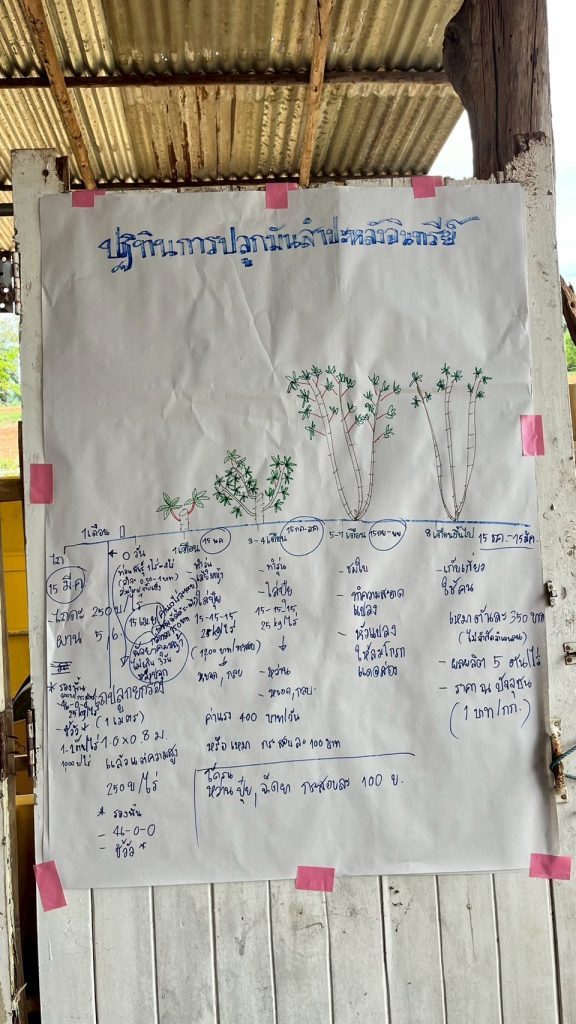 ปฏิทินการปลูกมันสำปะหลังอินทรีย์
1 เดือน
0 วัน
ไถ
15 มี.ค
- ไถดะ 250 บ/ไร่
ผาน 5, 6
15 เมย
ไม่เกิน 3 วัน
หลังปลูก
* รองพื้น
25 kg/ไร่
- ขี้วัว
1-2 ตัน/ไร่
ไถปลูกยกร่อง
(1 เมตร)
1.0 x 0.8 ม.
แล้วแต่ความสูง
250 บ/ไร่
* รองพื้น
- 46-0-0
- ขี้วัว *
1 เดือน 15 พค
- ทำรุ่น
- ใส่ปุ๋ย
15-15-15
25 kg/ไร่
หยอด, กลบ
3-4 เดือน 15 กค-สค
- ทำรุ่น
- ใส่ปุ๋ย
15-15-15,
25 kg/ไร่
↓
- หว่าน
- หยอด, กลบ.
ค่าแรง 400 บาท/วัน
หรือ เหมา กระสอบละ 100 บาท
หว่านปุ๋ย, ฉีดยา กระสอบละ 100 บ.
5-7 เดือน
- ชมใบ
- ทำความสะอาด
แปลง
- หัวแปลง
ให้ลมโกรก
แดดส่อง
8 เดือนขึ้นไป 15 ธค.-15 มีค.
- เก็บเกี่ยว
ใช้คน
เหมาตันละ 350 บาท
- ผลผลิต 5 ตัน/ไร่
- ราคา ณ ปัจจุบัน
(1 บาท/กก.)